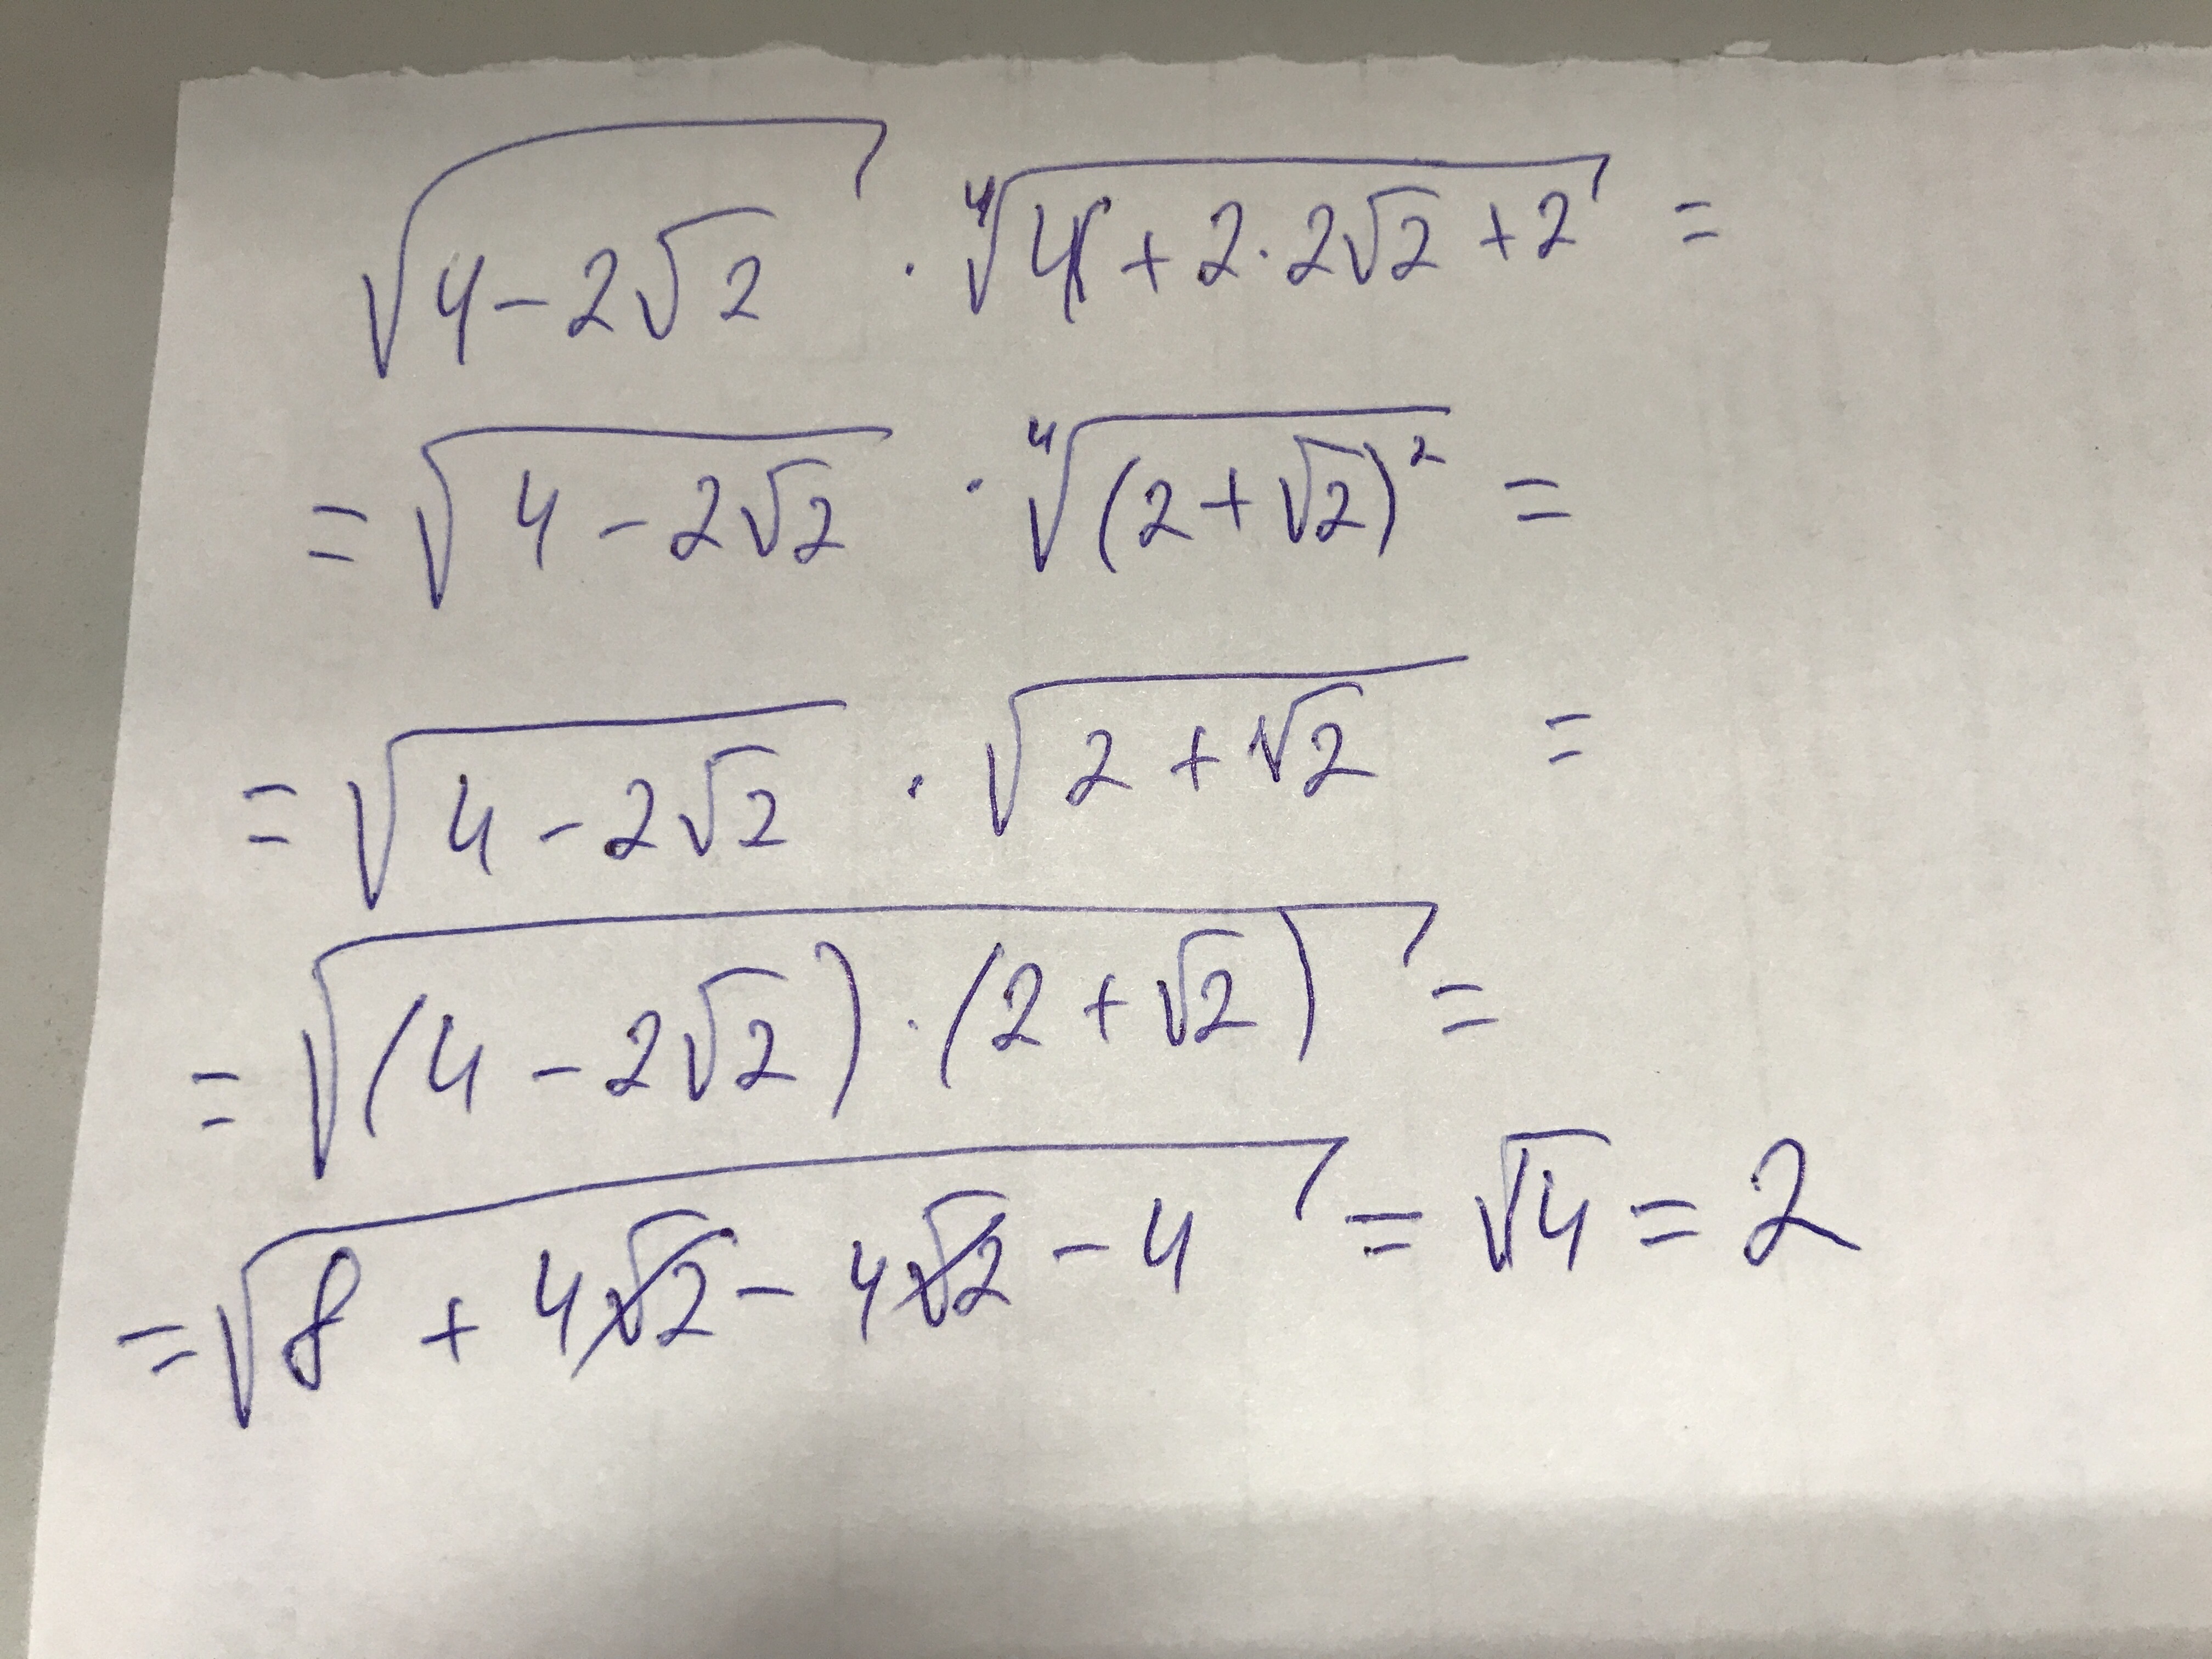 √(4-2√2) · ⁴√(4+2·2√2+2) =
= √(4-2√2) · ⁴√((2+√2)²) =
= √(4-2√2) · √(2+√2) =
= √((4-2√2)·(2+√2)) =
= √(8+4√2-4√2-4) = √4 = 2